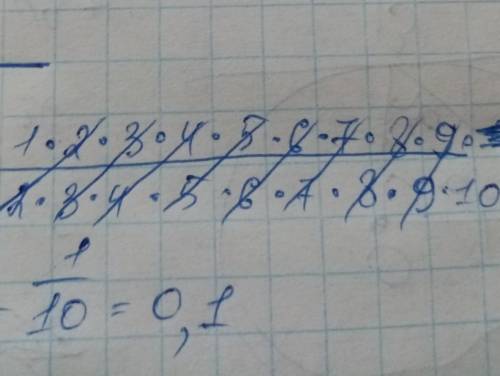 1 · 2 · 3 · 4 · 5 · 6 · 7 · 8 · 9 ·
2 · 3 · 4 · 5 · 6 · 7 · 8 · 9 · 10
1
10 = 0,1